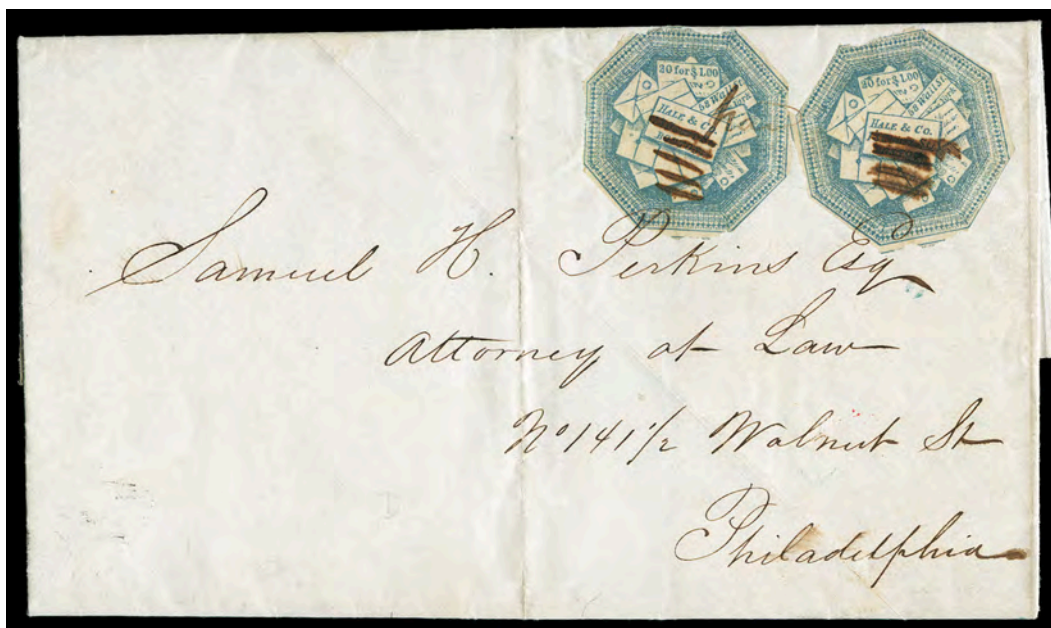 20 for $1.00
20 for $1.00
HALE & Co.
HALE & Co.
Samuel H. Perkins Esq
Attorney at Law
No 141 1/2 Walnut St
Philadelphia